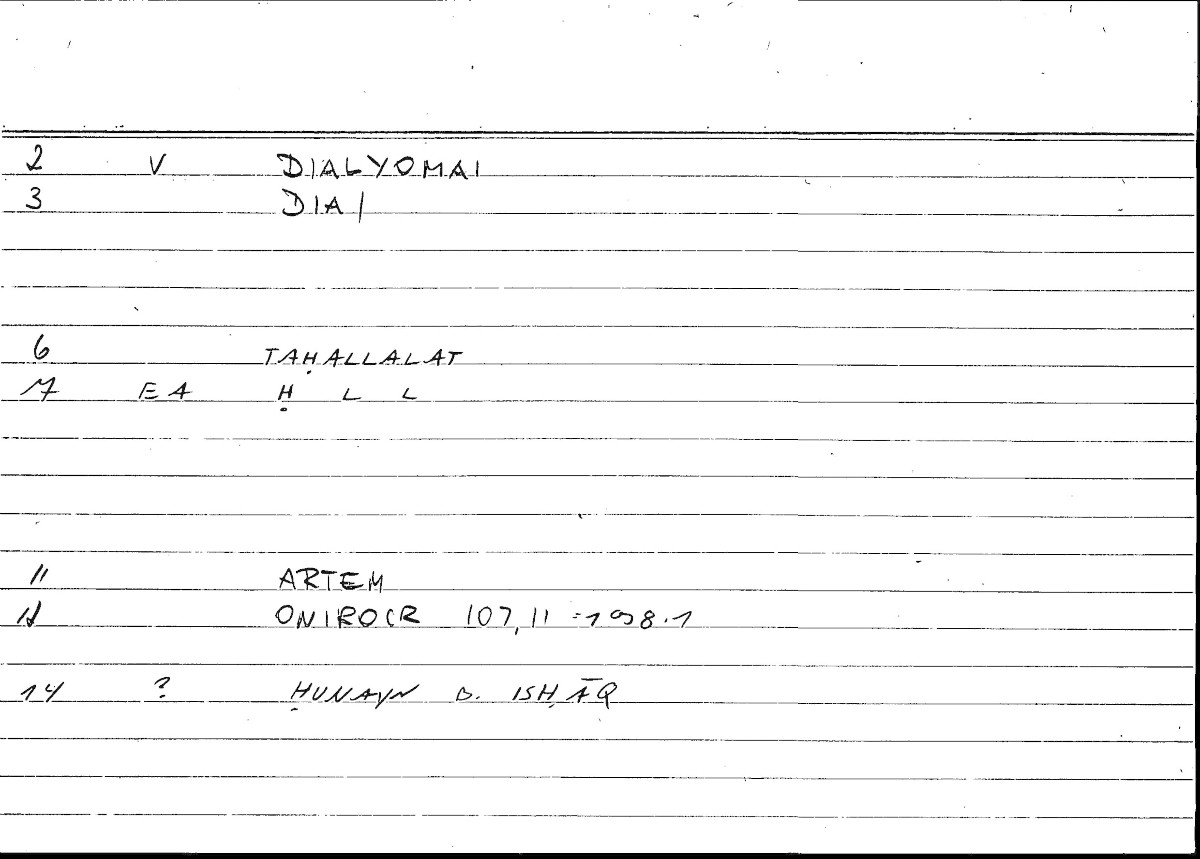 2 V DIALYOMAI
3 DIA/
6 TAḤALLALAT
7 EA Ḥ L L
11 ARTEM
12 ONIROCR 107,11 = 198.1
14 ? ḤUNAYN B. ISḤĀQ